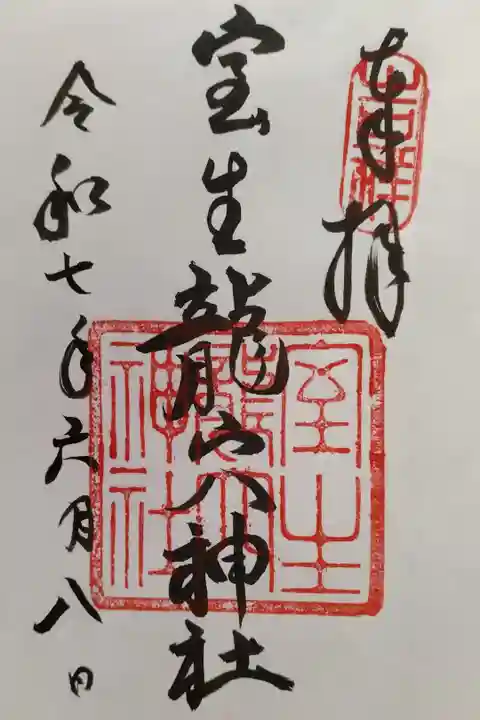 奉拝
室生龍穴神社
令和七年六月八日
室生龍穴神社